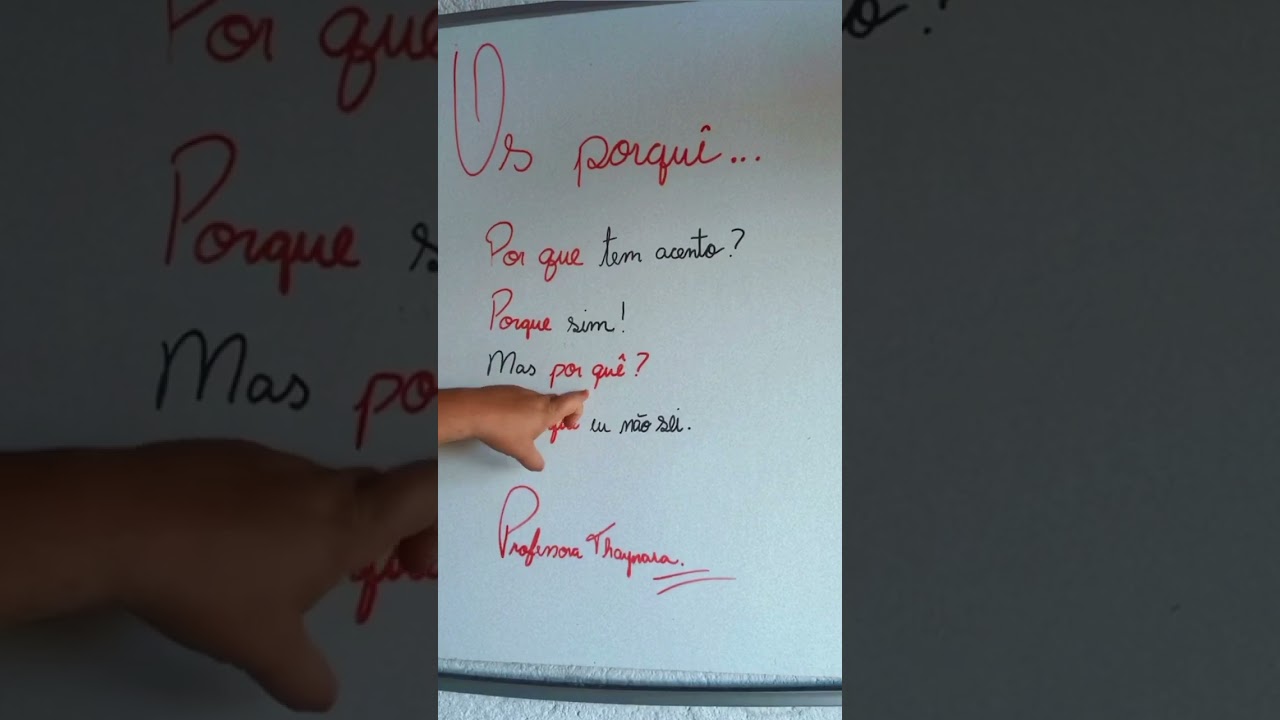 Os porquê...
Por que tem acento?
Porque sim!
Mas por quê?
eu não sei.
Professora Thaynara.